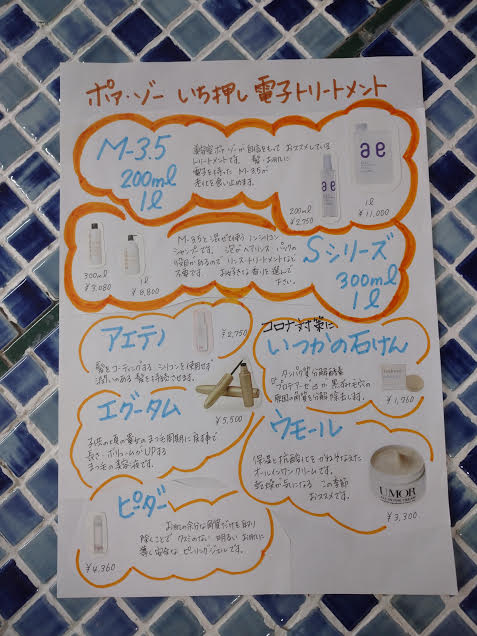 ポア・ゾー いち押し 電子トリートメント
M-3.5
200ml
1l
美容室ポア・ゾーが自信をもって おススメしている
トリートメントです。 髪・お肌に
電子を持った M-3.5が
老化を食い止めます。
ae
ae
200ml
¥2,750
1l
¥11,000
M-3.5と混ぜて使う ノンシリコン
シャンプーです。 泡がヘアリンス パックの
役目があるので リンス・トリートメントなど
不要です。 お好きな香りを選んで
下さい。
300ml
¥3,080
1l
¥8,800
Sシリーズ
300ml
1l
アエティ
¥2,750
髪をコーティングする シリコンを使用せず
潤いのある 髪を持続させます。
コロナ対策に
いつかの石けん
タンパク質分解酵素
プロテアーゼが 黒ずみ毛穴の
原因の角質を分解 除去します。
¥1,760
エグータム
¥5,500
長さ、ボリュームがUPする
まつ毛の美容液です。
ウモール
保湿と抗酸化を かねそなえた
オールインワンクリームです。
乾燥が気になる この季節
おススメです。
UMOR
¥3,300
ピーダー
お肌の余分な角質だけを取り
除くことで クスミのない 明るい お肌に
導く安全な ピーリングジェルです。
¥4,360